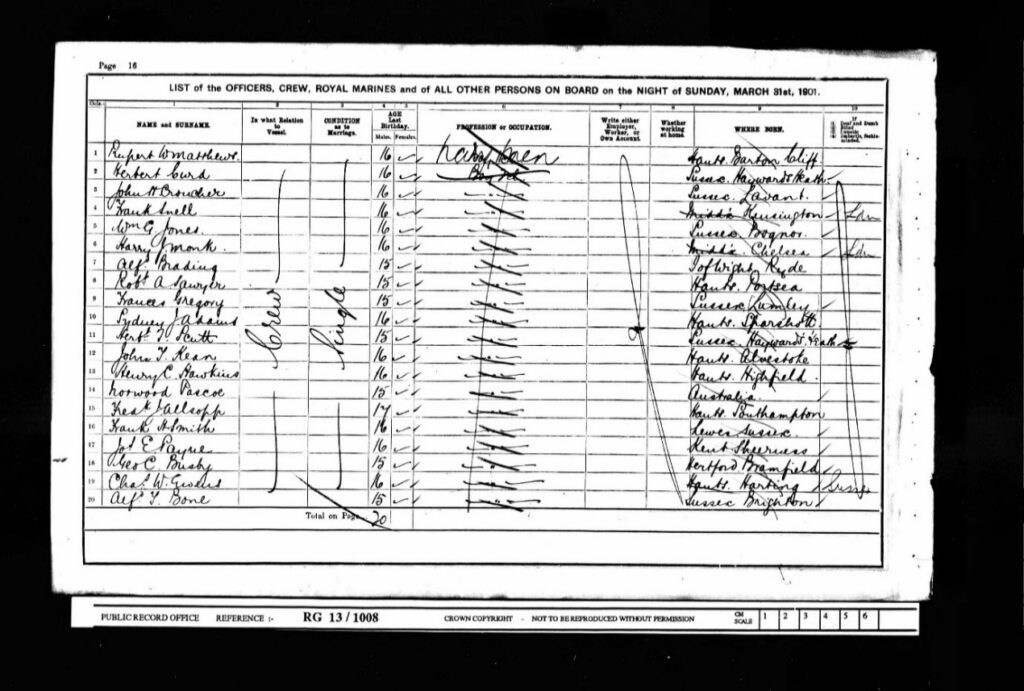 Page 16
LIST of the OFFICERS, CREW, ROYAL MARINES and of ALL OTHER PERSONS ON BOARD on the NIGHT of SUNDAY, MARCH 31st, 1901.
1 2 3 4 5 6 7 8 9 10
NAME and SURNAME. In what Relation to Vessel. CONDITION as to Marriage. AGE Last Birthday. Males. Females. PROFESSION or OCCUPATION. Write either Employer, Worker, or Own Account. Whether working at home. WHERE BORN. If Deaf and Dumb Blind
Crew Single
1 Rupert W Matthews. 16 Hants. Barton Cliff
2 Herbert Curd 16 Sussex Haywards Heath
3 John H Croucher 16 Sussex. Lavant.
4 Frank Snell 16 Midd'x Kensington
5 Wm G Jones. 16 Sussex. Bognor.
6 Harry J Monk. 16 Midd'x. Chelsea
7 Alfd Brading 15 I of Wight Ryde
8 Robt A Sawyer 15 Hants. Portsea
9 Frances Gregory 15 Sussex Lumley
10 Sydney J Adams 16 Hants. Sparshott
11 Herbt T. Scutt 15 Sussex. Haywards Heath
12 John T. Kean 16 Hants. Alvestoke
13 Henry C. Hawkins 16 Hants. Highfield.
14 Norwood Pascoe 15 Australia.
15 Fredk J Allsopp 17 Hants. Southampton
16 Frank H Smith 16 Lewes Sussex.
17 Jos E Payne 16 Kent Sheerness
18 Geo C. Busby 15 Hertford Bramfield
19 Chas W. Givens 16 Hants. Harting Sussex
20 Alfd T. Bone 15 Sussex Brighton
Total on Page 20
PUBLIC RECORD OFFICE REFERENCE :- RG 13/1008 CROWN COPYRIGHT - NOT TO BE REPRODUCED WITHOUT PERMISSION CM SCALE 1 2 3 4 5 6